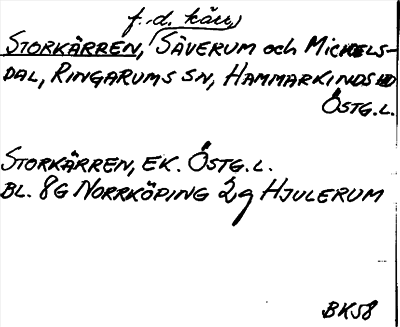 f.d. kärr
STORKÄRREN, SÄVERUM och MICKELS-
DAL, RINGARUMS SN, HAMMARKINDS HD
ÖSTG.L.
STORKÄRREN, EK. ÖSTG.L.
BL. 8G NORRKÖPING 2g HJULERUM
BK58